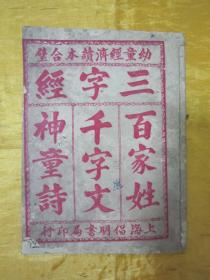 幼童經濟讀本合璧
三字經
百家姓
千字文
神童詩
上海倡明書局印行